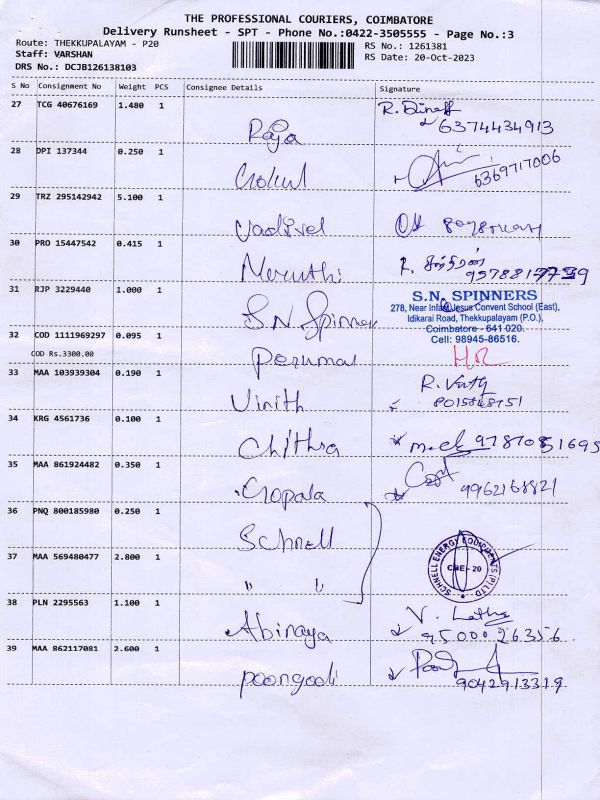 THE PROFESSIONAL COURIERS, COIMBATORE
Delivery Runsheet - SPT - Phone No.:0422-3505555 - Page No.:3
Route: THEKKUPALAYAM - P20
Staff: VARSHAN
DRS No.: DCJB126138103
RS No.: 1261381
RS Date: 20-Oct-2023
S No Consignment No Weight PCS Consignee Details Signature
27 TCG 40676169 1.480 1 Raja 6374434913
28 DPI 137344 0.250 1 Gokul 6369717006
29 TRZ 295142942 5.100 1 Vadivel
30 PRO 15447542 0.415 1 Maruthi
31 RJP 3229440 1.000 1 S.N. Spinner
S.N. SPINNERS
278, Near Infant Jesus Convent School (East),
Idikarai Road, Thekkupalayam (P.O.),
Coimbatore - 641 020.
Cell: 98945-86516.
32 COD 1111969297 0.095 1 Perumal
COD Rs.3300.00
33 MAA 103939304 0.190 1 Vinith R.
34 KRG 4561736 0.100 1 Chithra
35 MAA 861924482 0.350 1 Gopala
36 PNQ 800185980 0.250 1 Schnell
SCHNELL ENERGY EQUIPMENTS (P) LTD
CBE - 20
37 MAA 569480477 2.800 1 " "
38 PLN 2295563 1.100 1 Abinaya V. Latha 9500026356
39 MAA 862117081 2.600 1 Poongodi 9042913319